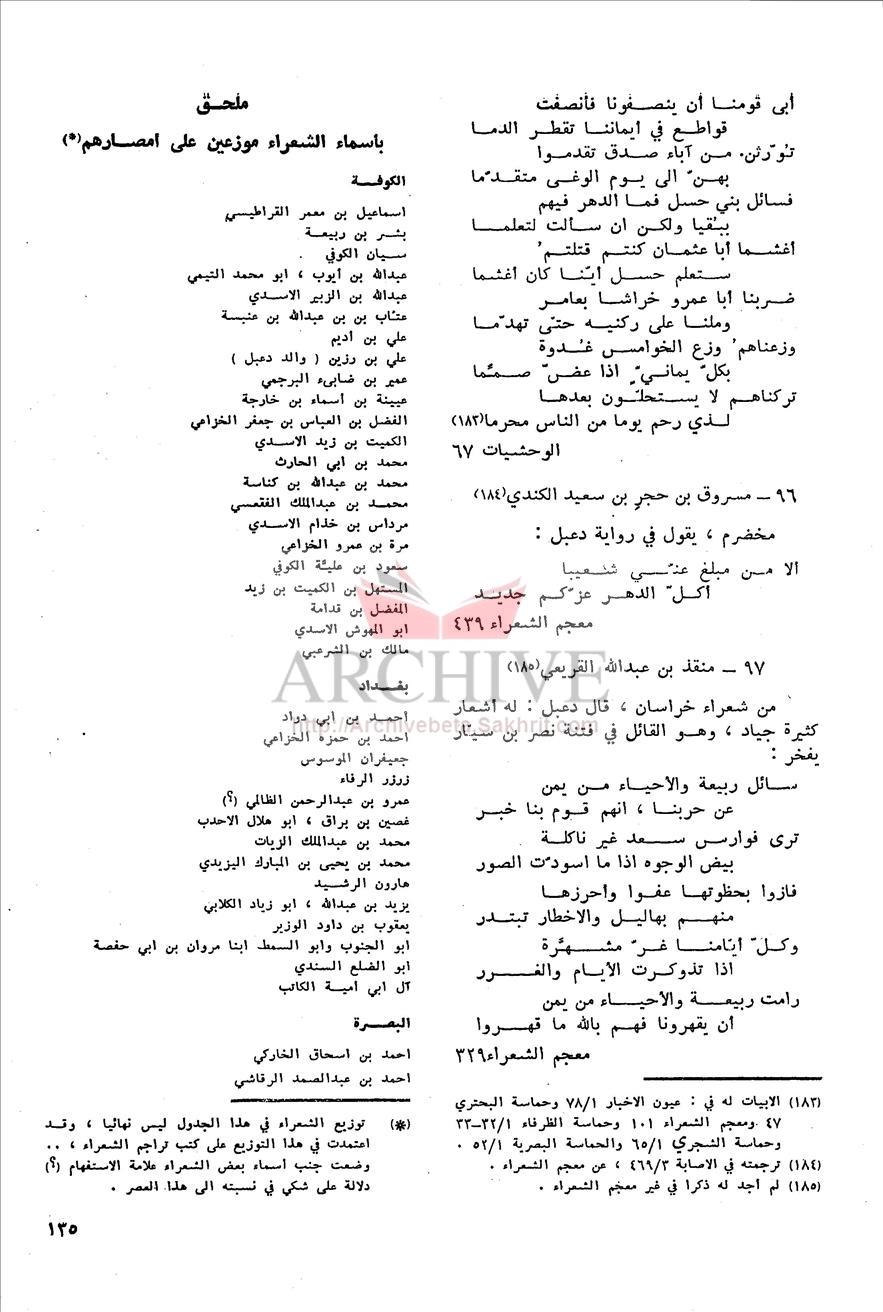 أبى قومنا أن ينصفونا فأنصفت
قواطع في أيماننا تقطر الدما
تورثن. من آباء صدق تقدموا
بهنّ الى يوم الوغى متقدّما
فسائل بني حسل فما الدهر فيهم
ببُقيا ولكن ان سألت لتعلما
أغشما أبا عثمان كنتم قتلتمُ
ستعلم حسل أيّنا كان أغشما
ضربنا أبا عمرو خراشا بعامر
وملنا على ركنيه حتى تهدّما
وزعناهمُ وزع الخوامس غُدوة
بكلّ يمانيّ اذا عضّ صمّما
تركناهم لا يستحلّون بعدها
لذي رحم يوما من الناس محرما(١٨٣)
الوحشيات ٦٧
٩٦ – مسروق بن حجر بن سعيد الكندي(١٨٤)
مخضرم ، يقول في رواية دعبل :
الا من مبلغ عنّي شعيبا
أكلّ الدهر عزّكم جديد
معجم الشعراء ٤٣٩
٩٧ – منقذ بن عبدالله القريعي(١٨٥)
من شعراء خراسان ، قال دعبل : له أشعار
كثيرة جياد ، وهو القائل في فتنة نصر بن سيّار
يفخر :
سائل ربيعة والأحياء من يمن
عن حربنا ، انهم قوم بنا خبر
ترى فوارس سعد غير ناكلة
بيض الوجوه اذا ما اسودّت الصور
فازوا بحظوتها عفوا وأحرزها
منهم بهاليل والاخطار تبتدر
وكلّ أيّامنا غرّ مشهّرة
اذا تذوكرت الأيام والغرر
رامت ربيعة والأحياء من يمن
أن يقهرونا فهم بالله ما قهروا
معجم الشعراء٣٢٩
(١٨٣) الابيات له في : عيون الاخبار ٧٨/١ وحماسة البحتري
٤٧ ومعجم الشعراء ١٠١ وحماسة الظرفاء ٣٢/١–٣٣
وحماسة الشجري ٦٥/١ والحماسة البصرية ٥٢/١ .
(١٨٤) ترجمته في الاصابة ٤٦٩/٣ ، عن معجم الشعراء .
(١٨٥) لم أجد له ذكرا في غير معجم الشعراء .
ملحق
بأسماء الشعراء موزعين على أمصارهم(*)
الكوفة
اسماعيل بن معمر القراطيسي
بشر بن ربيعة
سيان الكوفي .
عبدالله بن أيوب ، ابو محمد التيمي
عبدالله بن الزبير الاسدي
عتاب بن بن عبدالله بن عنبسة
علي بن أديم
علي بن رزين ( والد دعبل )
عمير بن ضابىء البرجمي
عيينة بن أسماء بن خارجة
الفضل بن العباس بن جعفر الخزاعي
الكميت بن زيد الاسدي
محمد بن ابي الحارث
محمد بن عبدالله بن كناسة
محمد بن عبدالملك الفقعسي
مرداس بن خذام الاسدي
مرة بن عمرو الخزاعي
سعود بن علية الكوفي
المستهل بن الكميت بن زيد
المفضل بن قدامة
ابو المهوش الاسدي
مالك بن الشرعبي
بغداد
احمد بن ابي دواد
احمد بن حمزة الخزاعي
جعيفران الموسوس
زرزر الرفاء
عمرو بن عبدالرحمن الظالمي (؟)
غصين بن براق ، ابو هلال الاحدب
محمد بن عبدالملك الزيات
محمد بن يحيى بن المبارك اليزيدي
هارون الرشيد
يزيد بن عبدالله ، ابو زياد الكلابي
يعقوب بن داود الوزير
ابو الجنوب وابو السمط ابنا مروان بن ابي حفصة
ابو الضلع السندي
آل ابي أمية الكاتب
البصرة
احمد بن اسحاق الخاركي
احمد بن عبدالصمد الرقاشي
(*) توزيع الشعراء في هذا الجدول ليس نهائيا ، وقد
اعتمدت في هذا التوزيع على كتب تراجم الشعراء ، ..
وضعت جنب أسماء بعض الشعراء علامة الاستفهام (؟)
دلالة على شكي في نسبته الى هذا العصر .
١٣٥
ARCHIVE
http://Archivebeta.Sakhrit.com